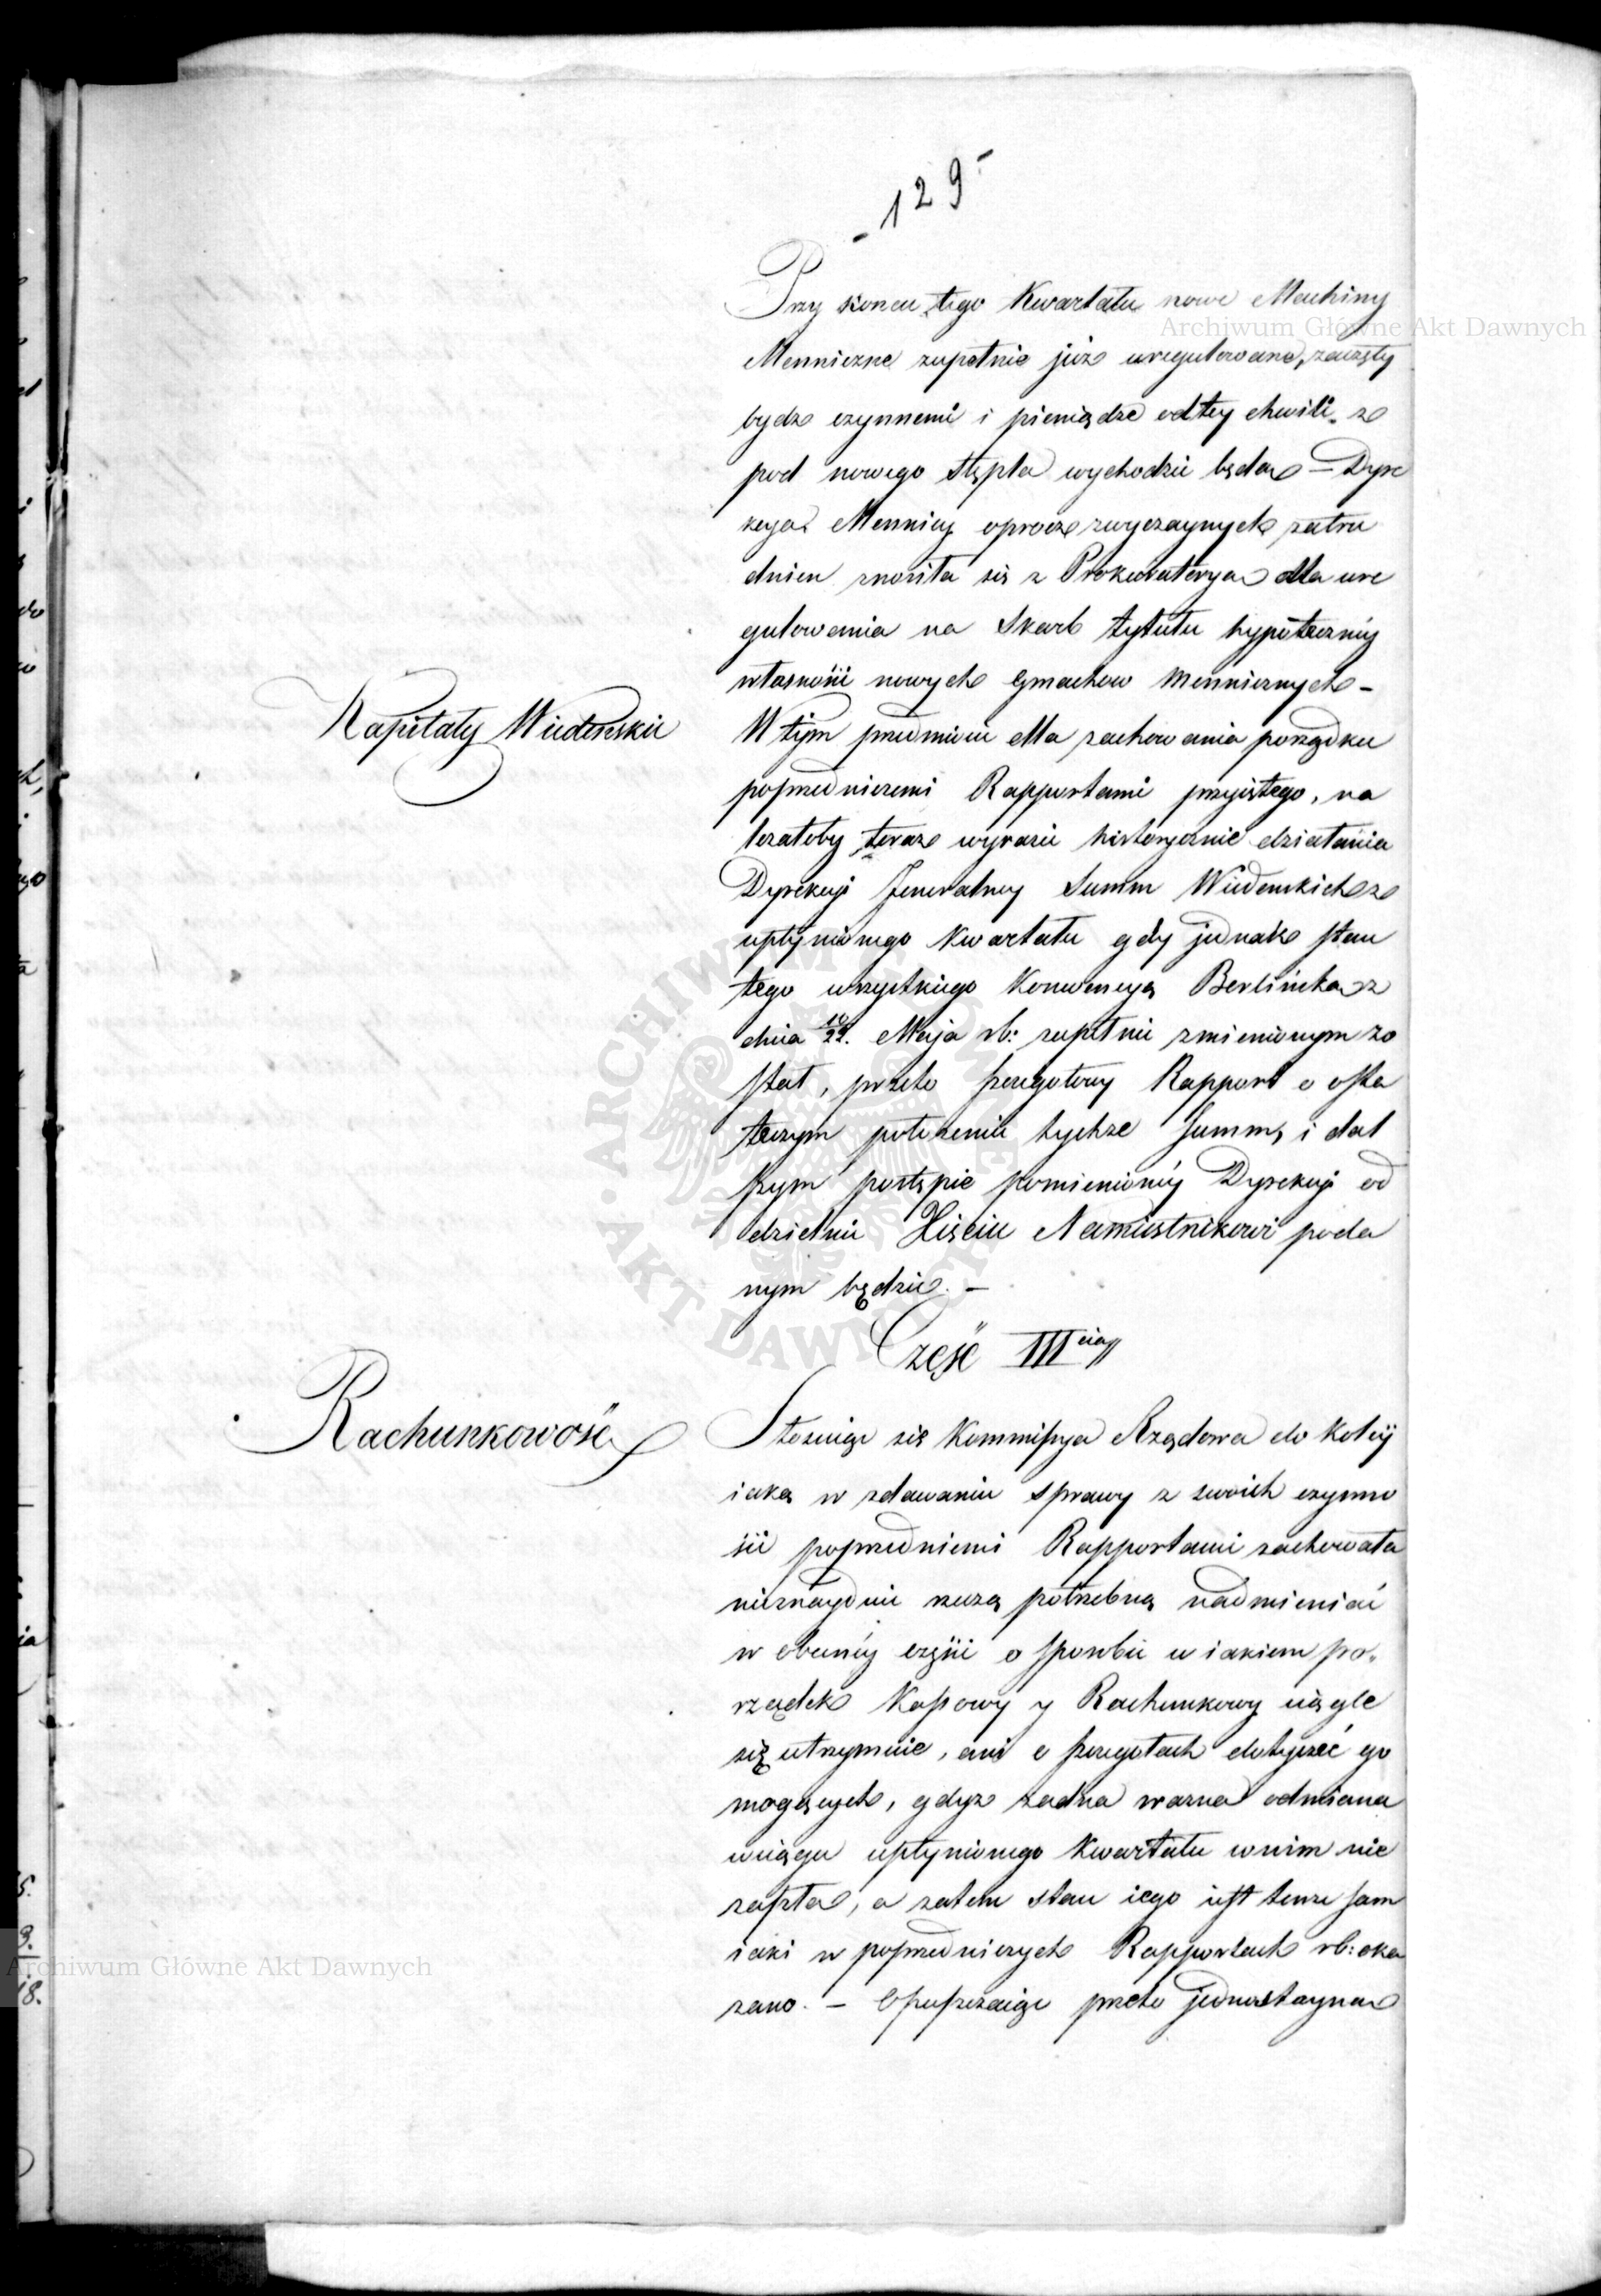 - 129 -
Przy koncu tego Kwartału nowe Machiny
Mennicze zupełnie już uregulowane, zaczęły
bydz czynnemi i pieniądze odtey chwili z
pod nowego stępla wychodzić będą – Dyre
kcya Mennicy oprocz zwyczaynych zatru
dnien znosiła się z Prokuratoryą dla ure
gulowania na Skarb tytułu hypoteczney
własności nowych Gmachow Menniczych –
Kapitały Wiedenskie
W tym przedmiocie dla zachowania porządku
poprzedniczemi Rapportami przyiętego, na
leżałoby teraz wyrazić historycznie działania
Dyrekcyi Jeneralney Summ Wiedenskich z
upłynionego Kwartału gdy jednak stan
tego wszystkiego Konwencyą Berlińską z
dnia 10/22. Maja rb: zupełnie zmienionym zo
stał, przeto szczegołowy Rapport o osta
tecznym położeniu tychże Summ, i dal
szym postępie pomienioney Dyrekcyi od
dzielnie Xięciu Namiestnikowi poda
nym będzie. –
Część III cia
Rachunkowość
Stosuiąc się Kommissya Rządowa do Kolei
iaką w zdawaniu sprawy z swoich czynno
ści poprzedniemi Rapportami zachowała
nieznayduie rzeczą potrzebną nadmieniać
w obecney części o sposobie w iakiem po„
rządek Kassowy y Rachunkowy ciągle
się utrzymuie, ani o szczegołach dotyczeć go
mogących, gdyż żadna ważna odmiana
wciągu upłynionego Kwartału w nim nie
zaszła, a zatem stan iego iest tenże sam
iaki w poprzedniczych Rapportach rb: oka
zano. – Opuszczaiąc przeto jednostayną
Archiwum Główne Akt Dawnych